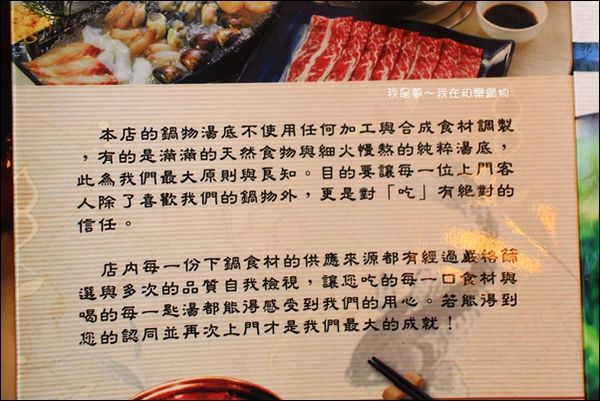 我是夢～我在和樂鍋物
本店的鍋物湯底不使用任何加工與合成食材調製
，有的是滿滿的天然食物與細火慢熬的純粹湯底，
此為我們最大原則與良知。目的要讓每一位上門客
人除了喜歡我們的鍋物外，更是對「吃」有絕對的
信任。
店內每一份下鍋食材的供應來源都有經過嚴格篩
選與多次的品質自我檢視，讓您吃的每一口食材與
喝的每一匙湯都能得感受到我們的用心。若能得到
您的認同並再次上門才是我們最大的成就！